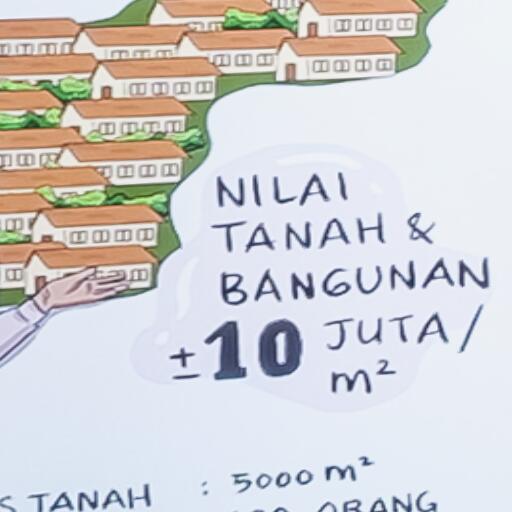 NILAI
TANAH &
BANGUNAN
±10 JUTA/
m²
TANAH : 5000 m²
ORANG